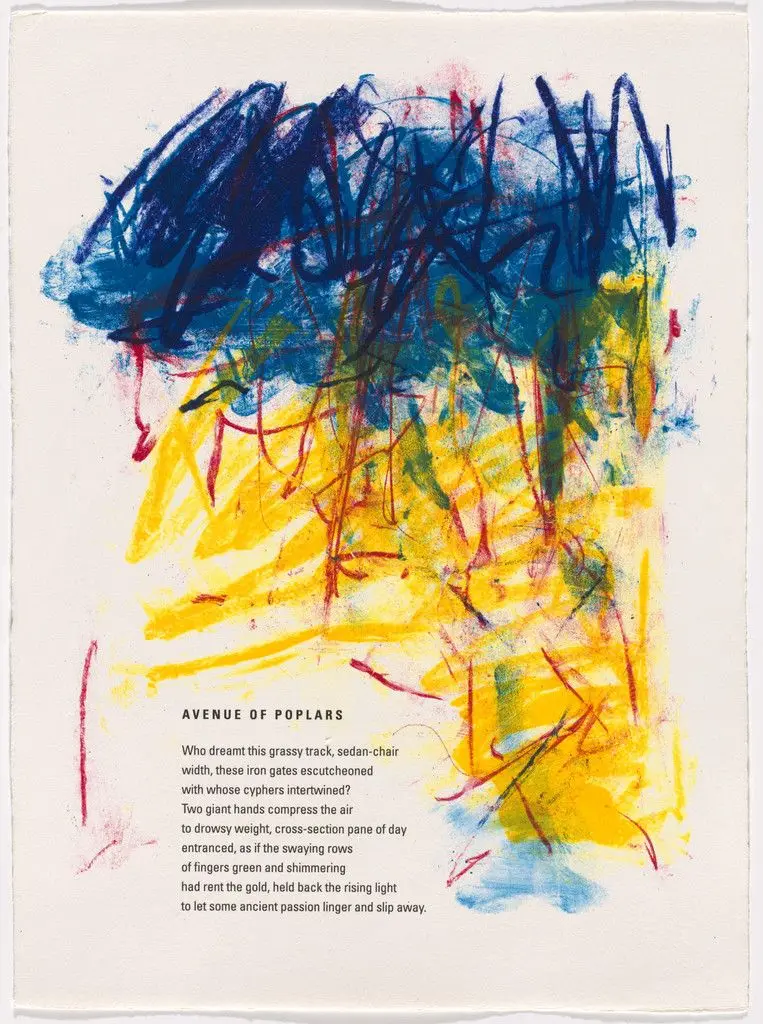 AVENUE OF POPLARS
Who dreamt this grassy track, sedan-chair
width, these iron gates escutcheoned
with whose cyphers intertwined?
Two giant hands compress the air
to drowsy weight, cross-section pane of day
entranced, as if the swaying rows
of fingers green and shimmering
had rent the gold, held back the rising light
to let some ancient passion linger and slip away.